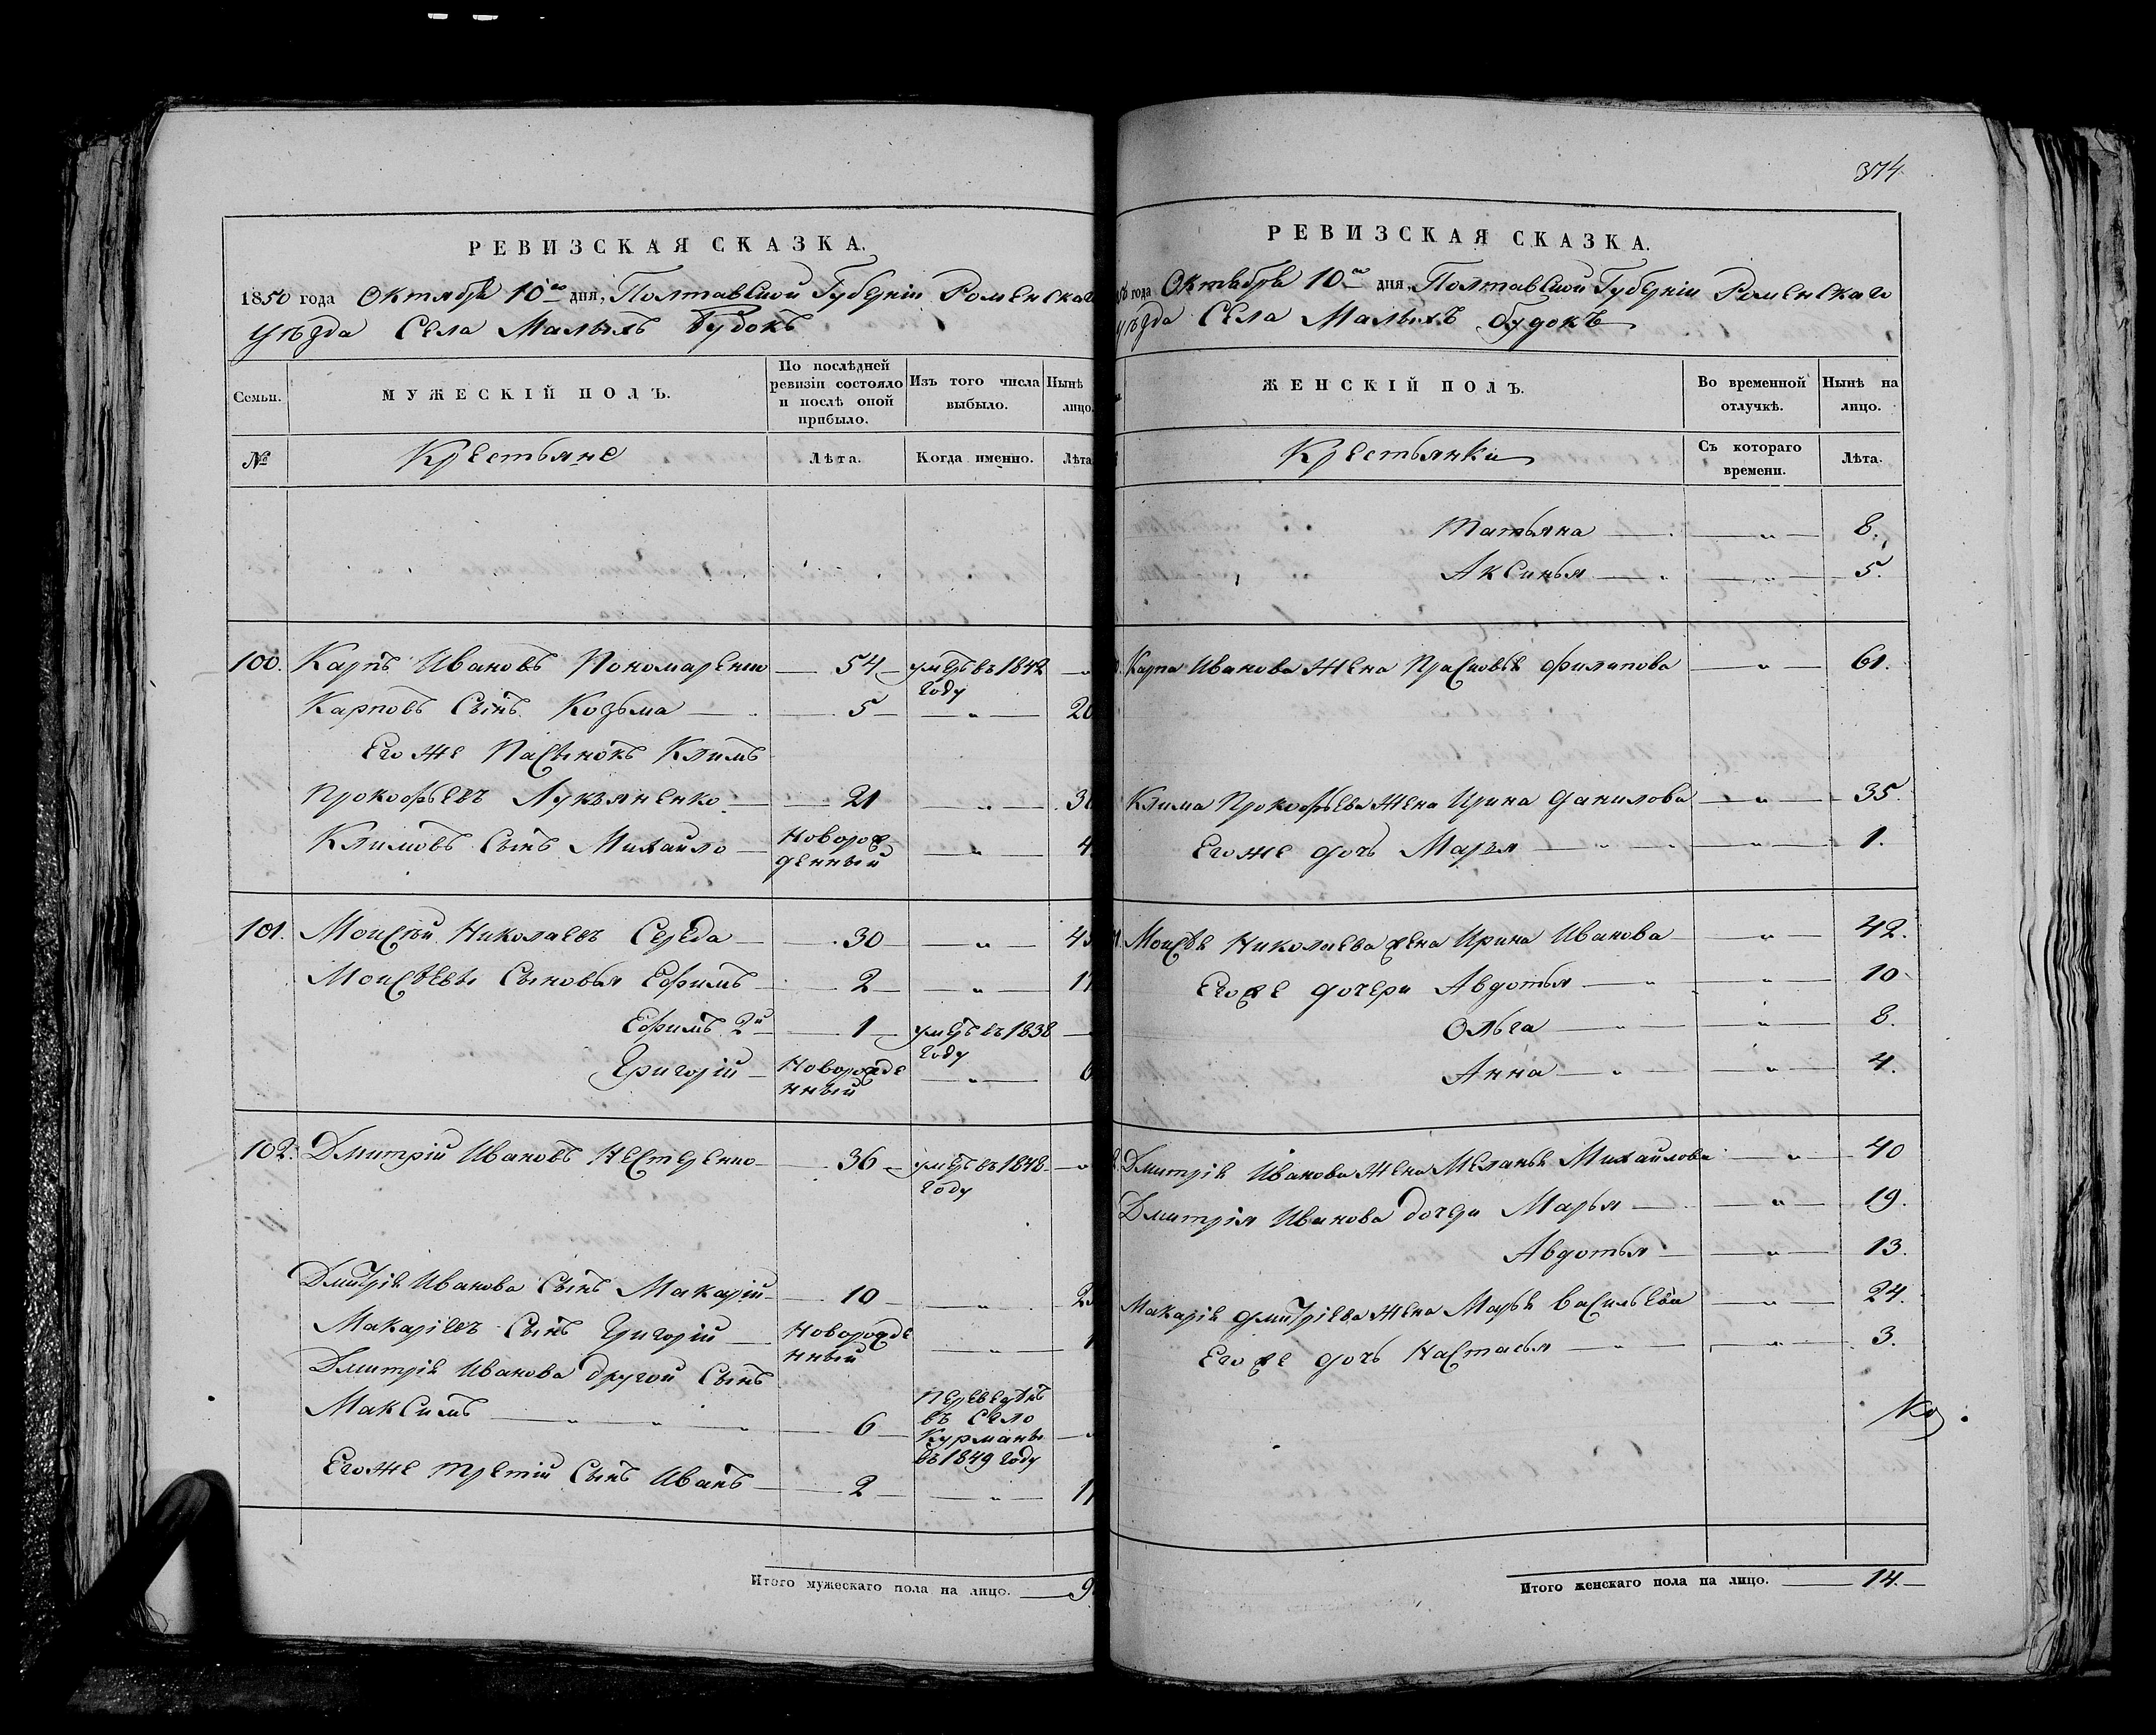 РЕВИЗСКАЯ СКАЗКА.
1850 года Октября 10го дня, Полтавской Губерніи Роменскаго
уѣзда Села Малыхъ Будокъ
Семьи. МУЖЕСКІЙ ПОЛЪ. По послѣдней ревизіи состояло и послѣ оной прибыло. Изъ того числа выбыло. Нынѣ лицо.
№ Крестьяне Лѣта. Когда именно. Лѣта
100. Карпъ Ивановъ Пономаренко — 54 — умеръ въ 1842 году
Карповъ Сынъ Козьма — 5 — „ —
Его же Пасынокъ Климъ
Прокофьевъ Лукьяненко — 21 — „ —
Климовъ Сынъ Михайло — Новорожденный — „ — 4
101. Моисѣй Николаевъ Середа — 30 — „ —
Моисѣевы Сыновья Ефимъ — 2 — „ — 17
Ефимъ 2й — 1 — умеръ въ 1838 году
Григорій — Новорожденный — „ — 6
102. Дмитрій Ивановъ Нестеренко — 36 — умеръ въ 1848 году
Дмитрія Иванова Сынъ Макарій — 10 — „ —
Макаріевъ Сынъ Григорій — Новорожденный — „ — 1
Дмитрія Иванова другой Сынъ
Максимъ — „ — „ — 6 — Переведенъ въ Село Курманы въ 1849 году
Его же третій Сынъ Иванъ — 2 — „ — 17
Итого мужескаго пола на лицо. — 9
374
РЕВИЗСКАЯ СКАЗКА.
года Октября 10го дня, Полтавской Губерніи Роменскаго
уѣзда Села Малыхъ Будокъ
ЖЕНСКІЙ ПОЛЪ. Во временной отлучкѣ. Нынѣ на лицо.
Крестьянки Съ котораго времени. Лѣта.
Татьяна — „ — 8.
Аксинья — „ — 5.
Карпа Иванова Жена Прасковья Филипова — „ — 61.
Клима Прокофьева Жена Ирина Данилова — „ — 35.
Его же дочь Марья — „ — 1.
Моисѣя Николаева жена Ирина Иванова — „ — 42.
Его же дочери Авдотья — „ — 10
Ольга — „ — 8.
Анна — „ — 4.
Дмитрія Иванова Жена Меланья Михайлова — „ — 40
Дмитрія Иванова дочери Марья — „ — 19.
Авдотья — „ — 13.
Макарія Дмитріева Жена Марья Васильева — „ — 24.
Его же дочь Настасья — „ — 3.
Итого женскаго пола на лицо. — 14. —